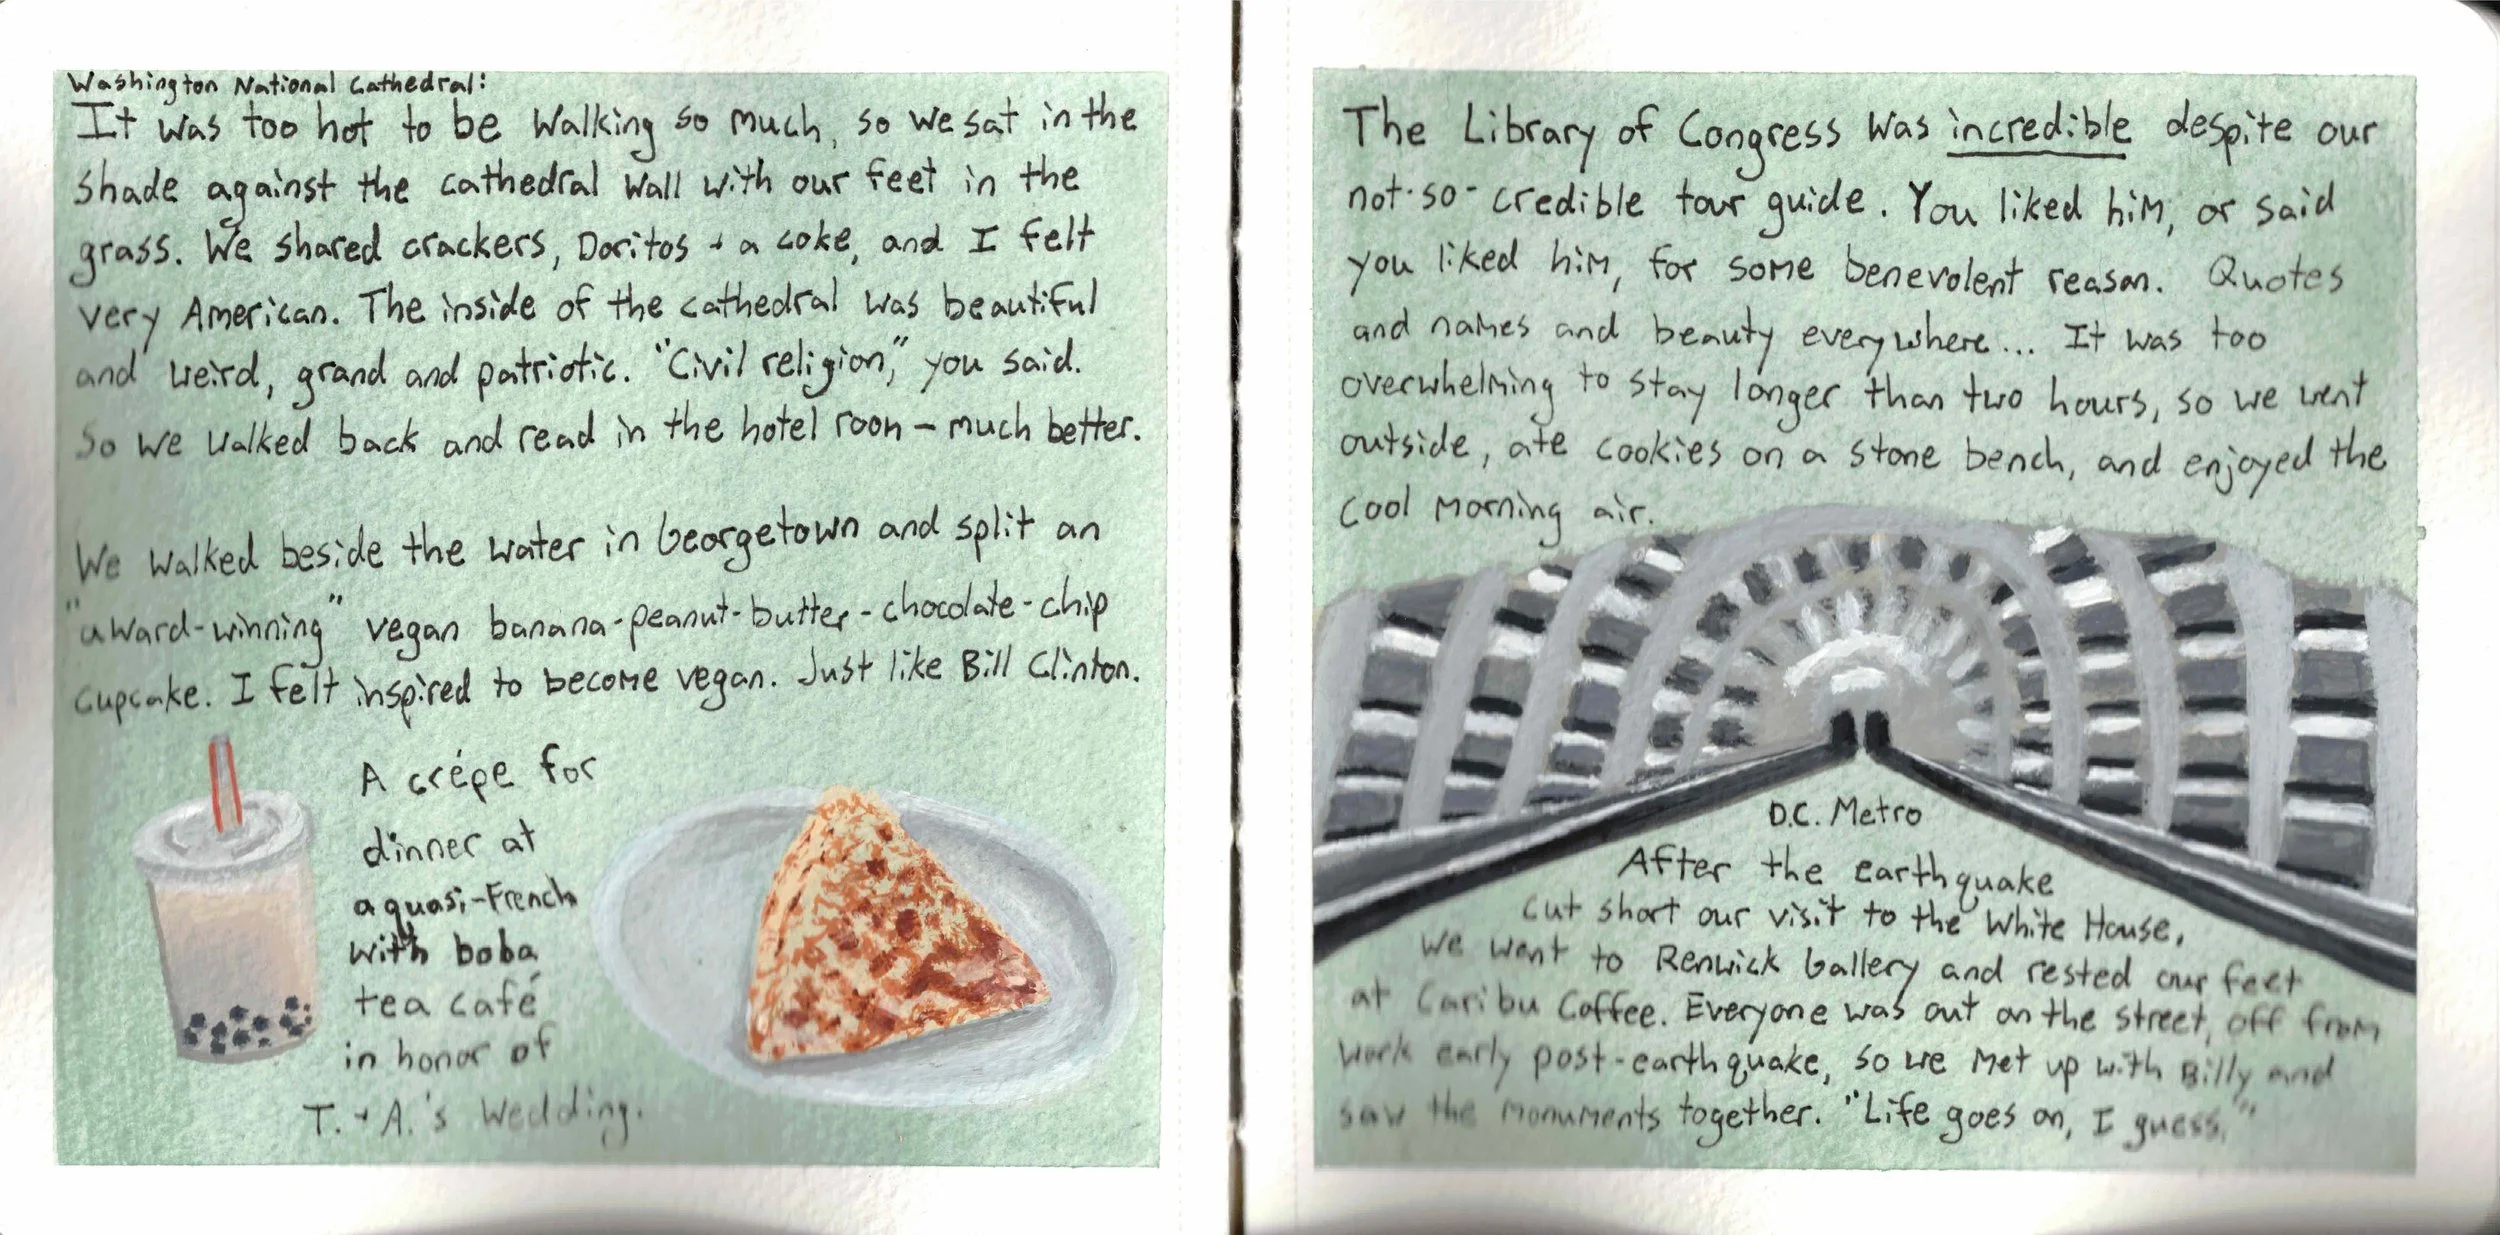 Washington National Cathedral:
It was too hot to be walking so much, so we sat in the
shade against the cathedral wall with our feet in the
grass. We shared crackers, Doritos + a coke, and I felt
very American. The inside of the cathedral was beautiful
and weird, grand and patriotic. "Civil religion," you said.
So we walked back and read in the hotel room – much better.
We walked beside the water in Georgetown and split an
"award-winning" vegan banana-peanut-butter-chocolate-chip
cupcake. I felt inspired to become vegan. Just like Bill Clinton.
A crépe for
dinner at
a quasi-French
with boba
tea café
in honor of
T. + A.'s wedding.
The Library of Congress was incredible despite our
not-so-credible tour guide. You liked him, or said
you liked him, for some benevolent reason. Quotes
and names and beauty everywhere... It was too
overwhelming to stay longer than two hours, so we went
outside, ate cookies on a stone bench, and enjoyed the
cool morning air.
D.C. Metro
After the earthquake
cut short our visit to the White House,
we went to Renwick Gallery and rested our feet
at Caribu Coffee. Everyone was out on the street, off from
work early post-earthquake, so we met up with Billy and
saw the monuments together. "Life goes on, I guess."